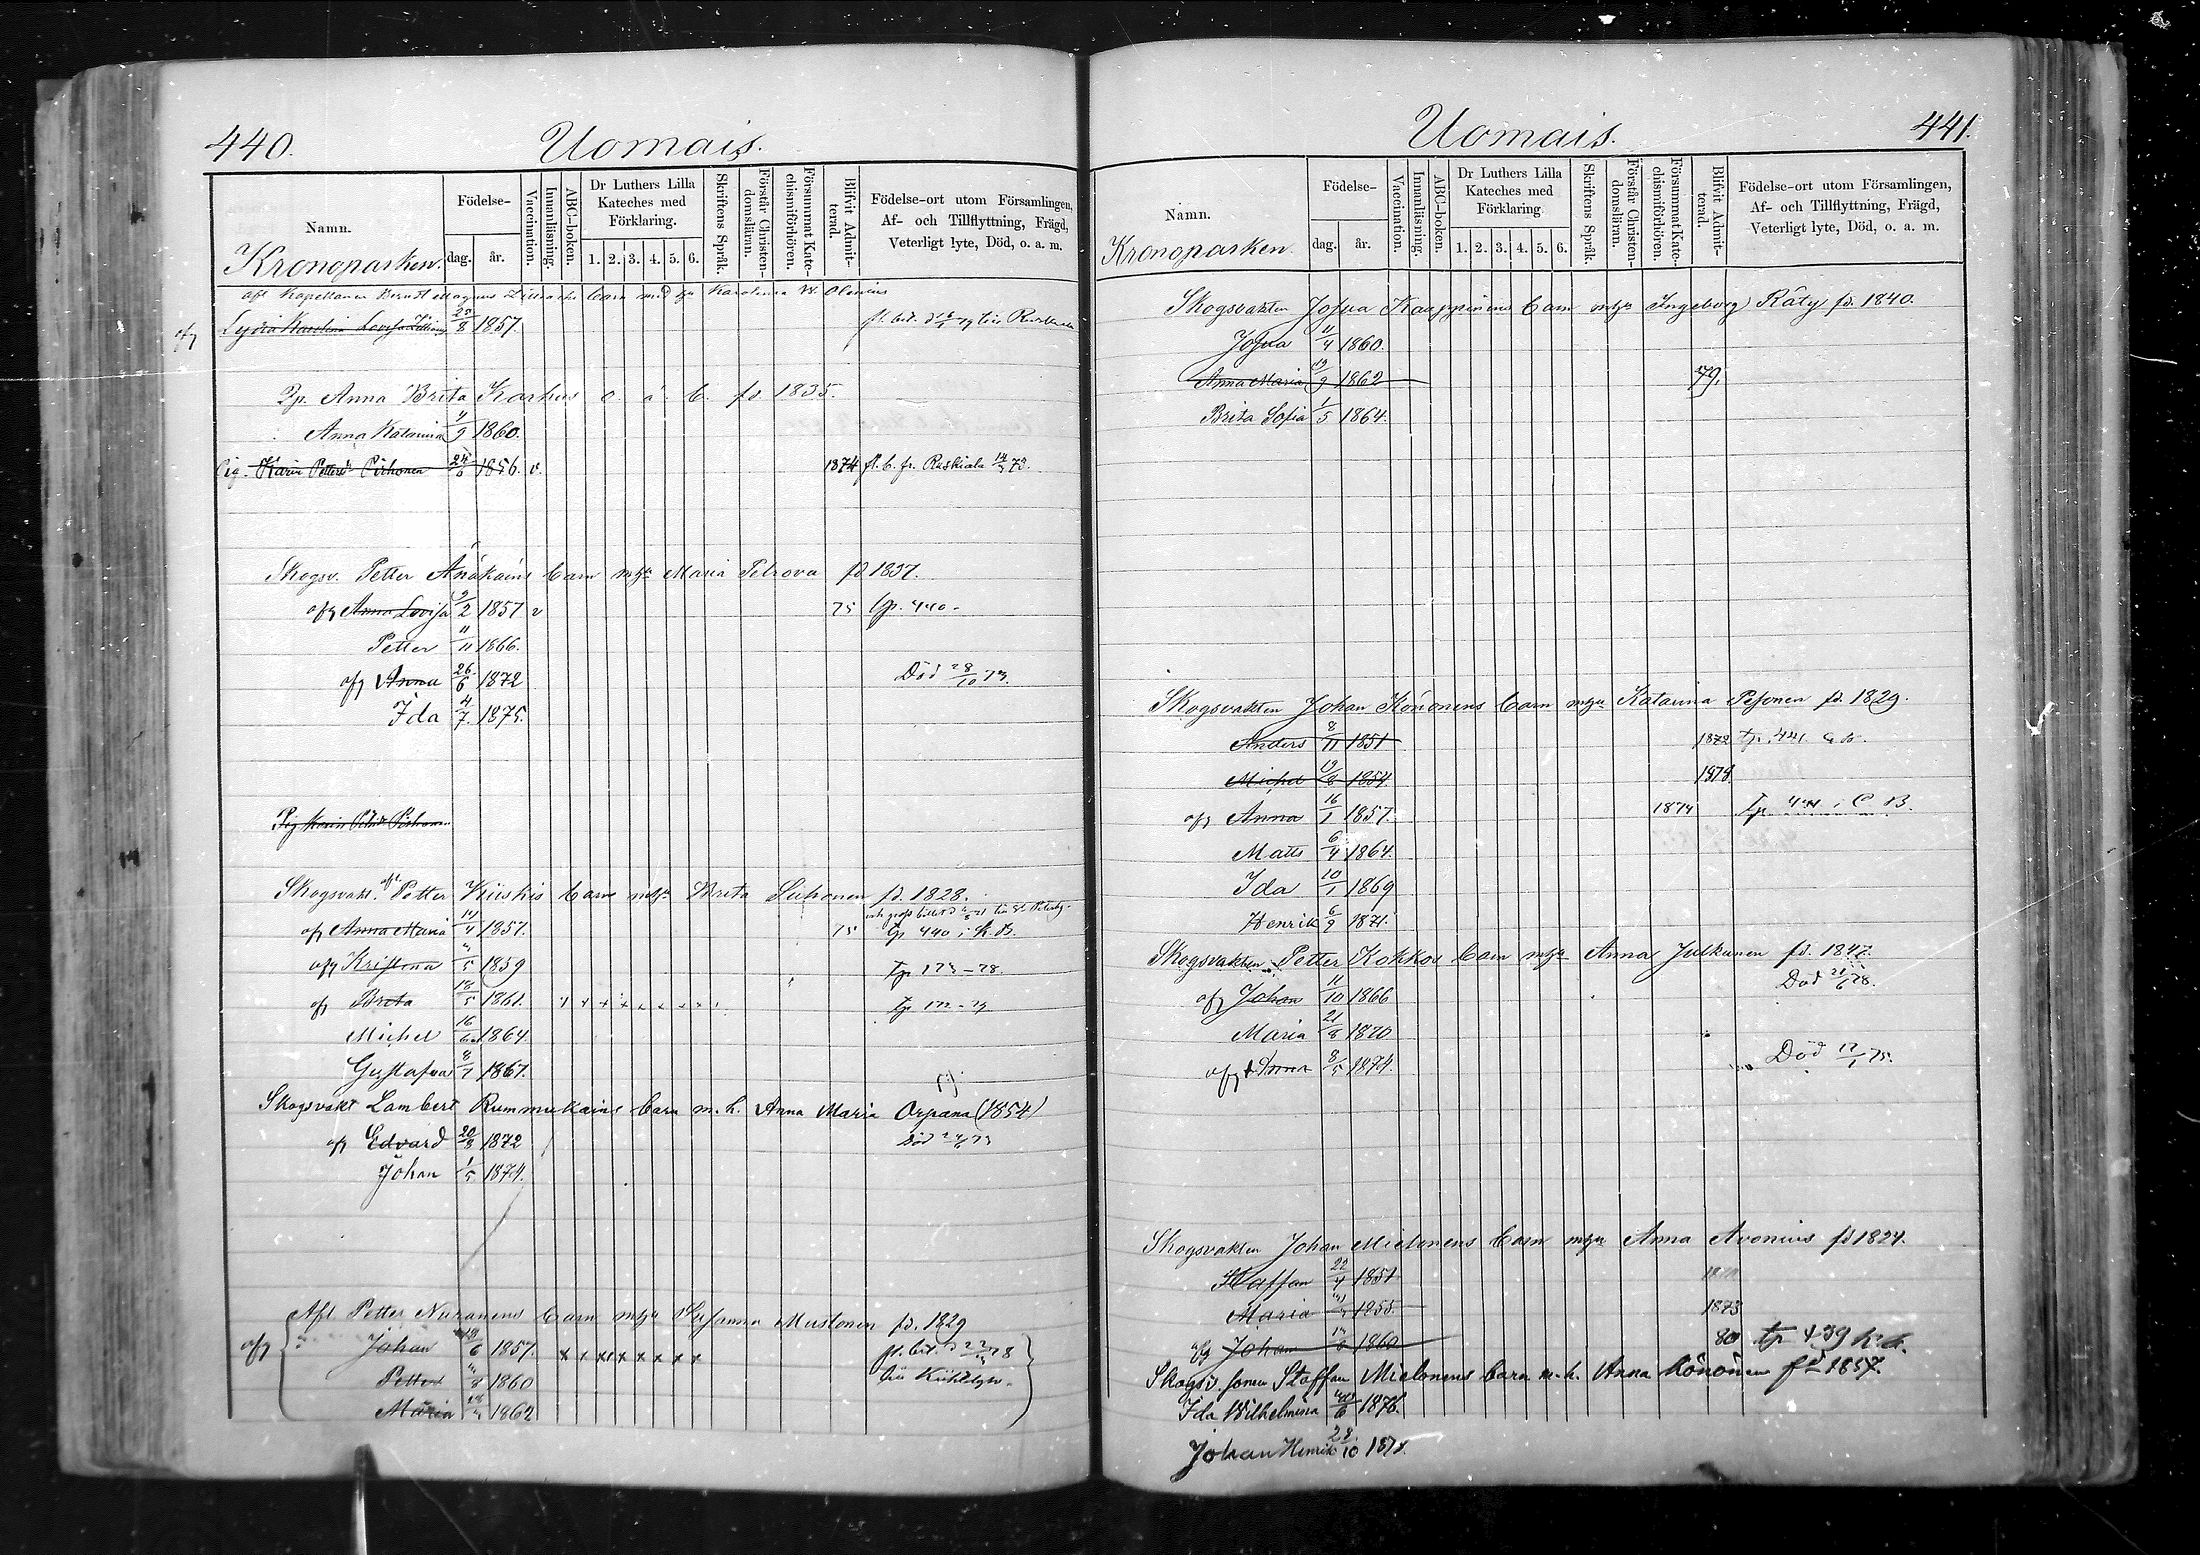 440.
Uomais.
Namn.
Kronoparken.
Födelse-
dag.
år.
Vaccination.
Innanläsning.
ABC-boken.
Dr Luthers Lilla
Kateches med
Förklaring.
1. 2. 3. 4. 5. 6.
Skriftens Språk.
Förstår Christen-
domsläran.
Försummat Kate-
chismiförhören.
Blifvit Admit-
terad.
Födelse-ort utom Församlingen,
Af- och Tillflyttning, Frägd,
Veterligt lyte, Död, o. a. m.
afl Kapellanen Berndt Magnus barn med Karolina W. Olenius
afg Lydia Lovisa 8 1857.
Anna Brita Karhus o. ä. b. fd. 1835.
Anna Katarina 11/9 1860.
Pig. Karin Petters Pirhonen 1856. v. 1874 fl. b. fr. Ruskiala 73.
Skogsv. Petter Änäkäins barn m hu Maria Petrova fd 1837.
afg Anna Lovisa 9/2 1857 v 75 tp. 440.
Petter 11/11 1866.
afg Anna 26/6 1872 Död 28/10 73.
Ida 4/7 1875.
Pig Karin Pirhonen
Skogsvakt. afl. Petter Kiiskis barn m hu Brita Suhonen fd. 1828.
afg Anna Maria 1857. 75 tp 440 i k. B.
afg Kristina 5 1859 tp 173-78.
af Brita 18/5 1861. x x x x x x x x tp 172-79
Michel 16/6 1864.
Gustafva 8/7 1867.
Skogsvakt Lambert Rummukains barn m. h. Anna Maria Orpana (1854)
afg Edvard 20/8 1872 Död 73
Johan 1/5 1874.
Afl. Petter Nuranens barn m hu Susanna Mustonen fd. 1829
afg Johan 6 1857. x x x x x x x x fl. bet. d 78
Petter 8 1860
Maria 1862
441.
Uomais.
Namn.
Kronoparken.
Födelse-
dag.
år.
Vaccination.
Innanläsning.
ABC-boken.
Dr Luthers Lilla
Kateches med
Förklaring
1. 2. 3. 4. 5. 6.
Skriftens Språk.
Förstår Christen-
domsläran.
Försummat Kate-
chismiförhören.
Blifvit Admit-
terad.
Födelse-ort utom Församlingen,
Af- och Tillflyttning, Frägd,
Veterligt lyte, Död, o. a. m.
Skogsvakten Josua Kauppinens barn m hu Ingeborg Räty fd. 1840.
Josua 11/4 1860.
Anna Maria 19/9 1862 79.
Brita Sofia 1/5 1864.
Skogsvakten Johan Könönens barn m hu Katarina Pesonen fd. 1829.
Anders 8/11 1851 1872 tp. 441.
Michel 19/8 1854 1878
afg Anna 16/1 1857. 1874 tp. 441 i C B.
Matts 6/4 1864.
Ida 10/1 1869
Henrik 6/9 1871.
Skogsvakten Petter Kokkos barn m hu Anna Julkunen fd. 1847.
afg Johan 11/10 1866 Död 21/6 78.
Maria 21/8 1870
afg Anna 8/5 1874. Död 17/1 75.
Skogsvakten Johan Mielonens barn m hu Anna Avonius fd 1824.
Staffan 22/4 1851
Maria 1855 1873
afg Johan 1860 80 tp 439 k. d.
Skogsv. sonen Staffan Mielonens barn m. h. Anna Könönen fd 1857.
Ida Wilhelmina 6 1876.
Johan Henrik 28/10 1878.